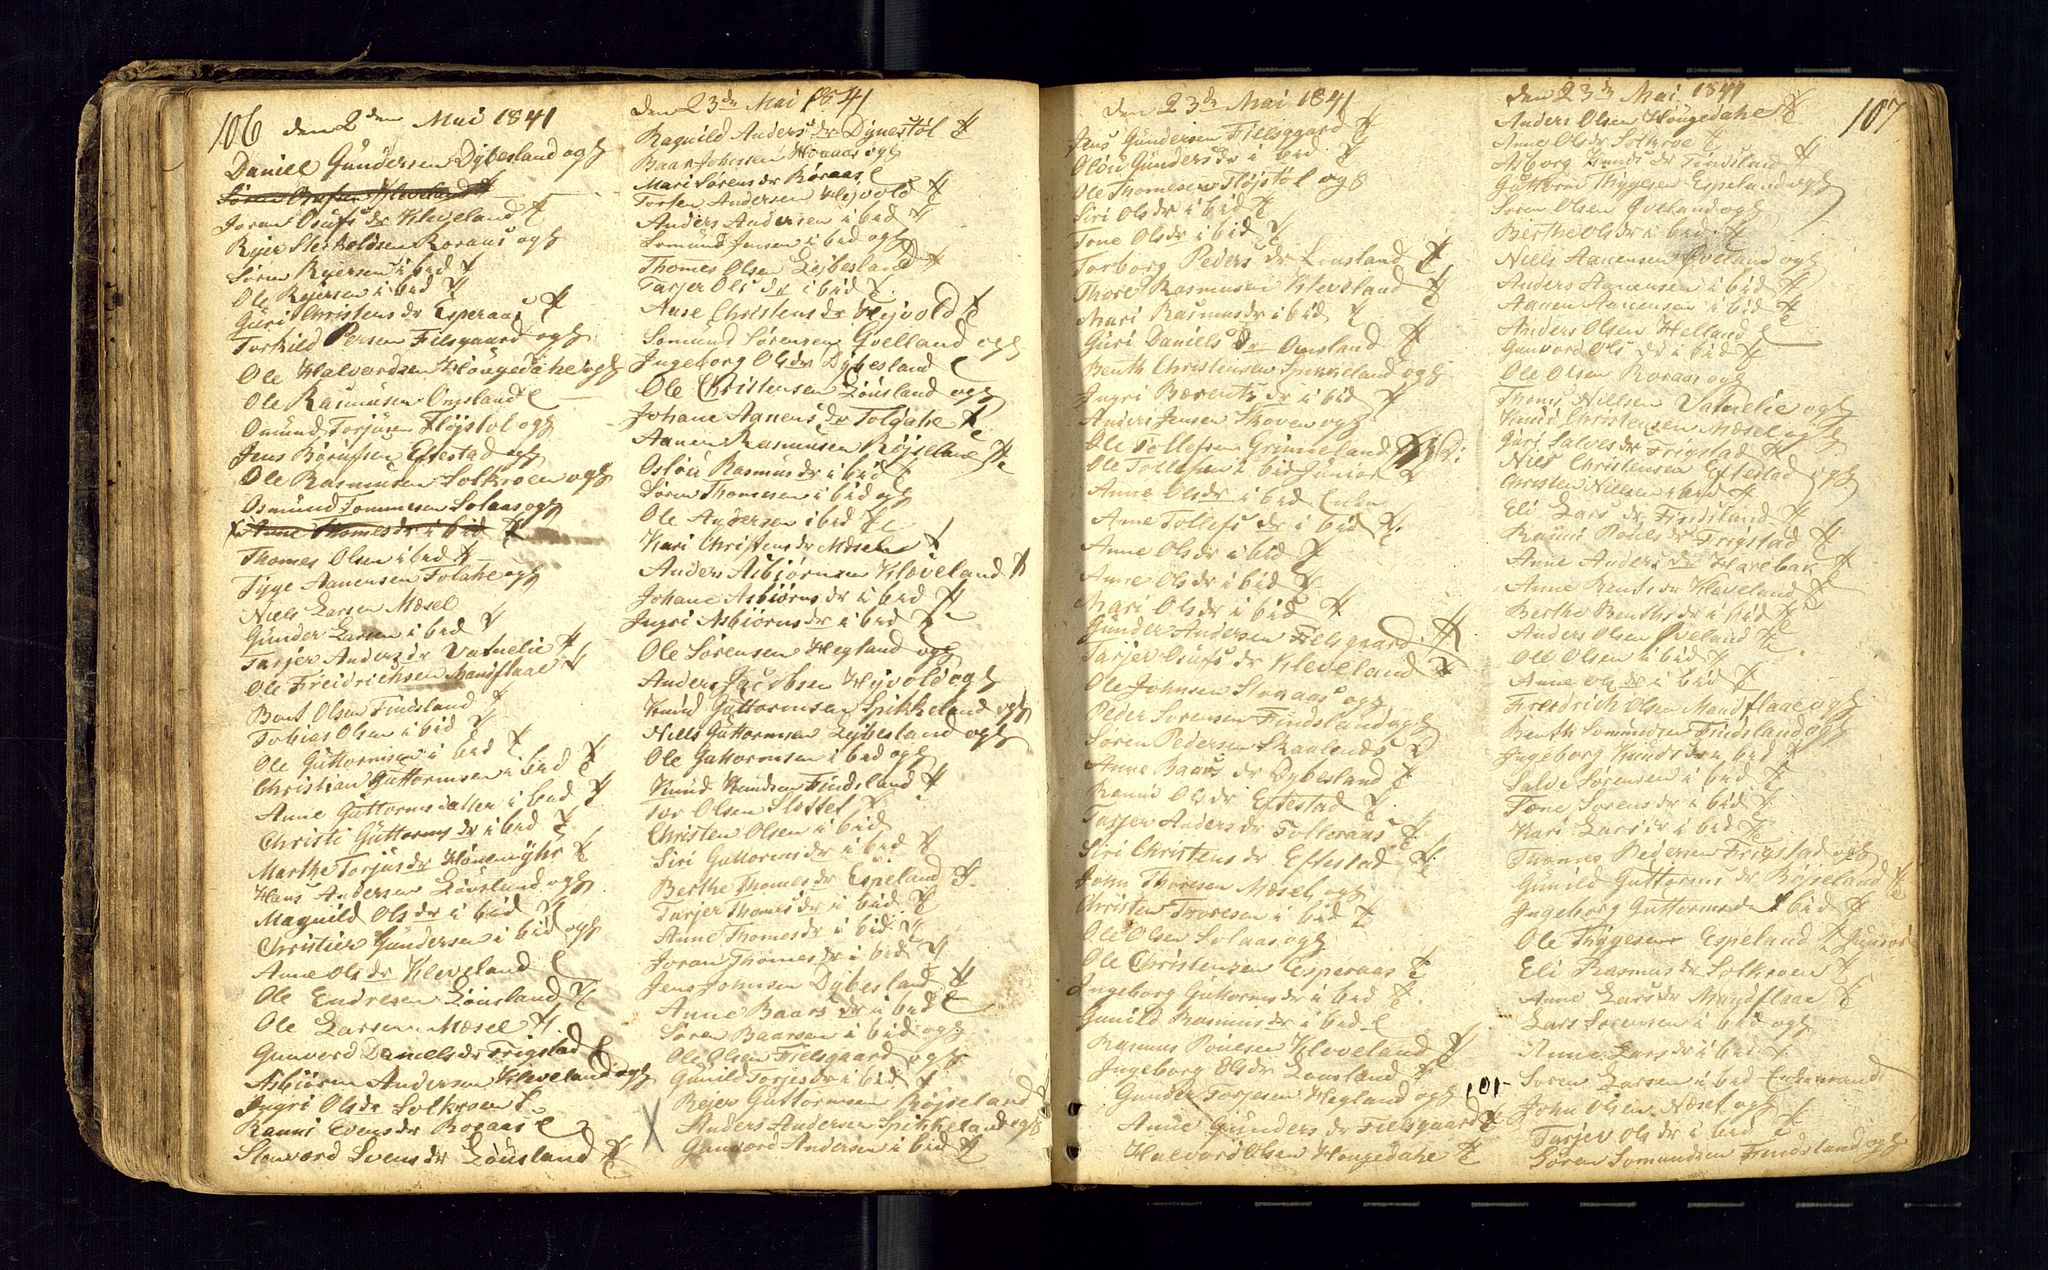 106
den 2den Mai 1841
Daniel Gundersen Dybesland og
Søren Osufsen Kleveland
Joran Osufs dr Kleveland
Rejer Roraas og
Søren Rejersen i bid
Ole Rejersen i bid
Guri Christens dr Esperaas
Torkild Persen Fielsgaard og
Ole Halvordsen Hougedahe og
Ole Rasmusen Omsland
Omund Torjusen Fløjstol og
Jens Eftestad og
Ole Rasmusen Solkroen og
Osmund Tommesen Solaas og
Anne Thomes dr i bid
Thomes Olsen i bid
Tyge Aanensen og
Niels Larsen Mæsel
Gunder Larsen i bid
Tarjer Anders dr Vatnelie
Ole Freidrichsen Mandflaae
Bent Olsen Findsland
Tobias Olsen i bid
Ole Guttormsen i bid
Christian Guttormsen i bid
Anne Guttorms datter i bid
Christi Guttorms dr i bid
Marthe Torjus dr
Hans Andersen Lousland og
Magnild Ols dr i bid
Christen Gundersen i bid og
Anne Ols dr Kleveland
Ole Endresen Lousland
Ole Larsen Mæsel
Gunvord Daniels dr Frigstad
Asbiørn Andersen Kleveland og
Ingri Ols dr Solkroen
Ranni Evens dr Roraas
Svens dr Lousland
den 23de Mai 1841
Ragnild Anders dr Dynestøl
Baar Johnsen Horaas og
Mari Sørens dr Roraas
Torjer Andersen Hejvold
Anders Andersen i bid
Somund Jensen i bid og
Thomes Olsen Lejbesland
Tarjer Ols dr i bid
Anne Christens dr Hejvold
Somund Sørensen Qvelland og
Ingeborg Ols dr Dybesland
Ole Christensen Lousland og
Johane Aanens dr
Aanen Rasmusen Røjseland
Rasmus dr i bid
Søren Thomesen i bid og
Ole Andersen i bid
Kari Christens dr Mæsel
Anders Asbjørnsen Kleveland
Johane Asbiørns dr i bid
Ingri Asbiørns dr i bid
Ole Sørensen Hegland og
Anders Jacobsen Hejvold og
Knud Guttormsen Spikkeland og
Niels Guttormsen Lejbesland og
Ole Guttormsen i bid og
Knud Knudsen Findsland
Tor Olsen Slottet
Christen Olsen i bid
Siri Guttorms dr i bid
Berthe Thomes dr Espeland
Tarjer Thomes dr i bid
Anne Thomes dr i bid
Joran Thomes dr i bid
Jens Johnsen Dybesland
Anne Baars dr i bid
Søren Baarsen i bid og
Ole Olsen Fielsgaard og
Gunild Torjes dr i bid
Rejer Guttormsen Røjseland
Anders Andersen Spikkeland og
Gunvord Andersen i bid
den 23de Mai 1841
Jens Gundersen Fielsgaard
Olou Gunders dr i bid
Ole Thomesen Fløjstøl og
Siri Ols dr i bid
Tone Ols dr i bid
Torborg Peders dr Lousland
Thore Rasmusen Kleveland
Mari Rasmus dr i bid
Guri Daniels dr Omsland
Benth Christensen Spikkeland og
Ingri Berents dr i bid
Anders Jensen Skoven og
Ole Tollefsen Grimeland
Ole Tollefsen i bid Junior
Anne Ols dr i bid Enke
Anne Tollefs dr i bid
Anne Ols dr i bid
Anne Ols dr i bid
Mari Ols dr i bid
Gunder Andersen Fielsgaard
Tarjer Osufs dr Kleveland
Ole Johnsen og
Peder Sørensen Findsland og
Søren Pedersen
Anne Baars dr Dybesland
Ranni Ols dr Eftestad
Tarjer Anders dr
Siri Christens dr Eftestad
John Thoresen Mæsel og
Christen Thoresen i bid
Ole Olsen Solaas og
Ole Christensen Esperaas
Ingeborg Guttorms dr i bid
Gunild Rasmus dr i bid
Rasmus Kleveland
Ingeborg Ols dr Lousland
Gunder Torjesen Hegland og 101
Anne Gunders dr Fielsgaard
Halvord Olsen Hougedahe
den 23de Mai 1841
107
Anders Olsen Hougedahe
Anne Ols dr Solkroe
Asborg Knuds dr Findsland
Guttorm Thygesen Espeland og
Søren Olsen Qveland og
Berthe Ols dr i bid
Niels Aanensen Qveland og
Anders Aanensen i bid
Aanen Aanensen i bid
Anders Olsen Helland
Gunvord Ols dr i bid
Ole Olsen Roraas og
Thomes Nillsen Vatnelie og
Knud Christensen Mæsel og
Guri Salves dr Frigstad
Niels Christensen Eftestad og
Christen Nillsen i bid
Eli Lars dr Findsland
Ranni dr Frigstad
Anne Anders dr Harebak
Anne Bents dr Kleveland
Berthe Benths dr i bid
Anders Olsen Qveland
Ole Olsen i bid
Anne Ols dr i bid
Freidrich Olsen Mandflaae og
Benth Somundsen Findsland og
Ingeborg Knuds dr i bid
Salve Sørensen i bid
Tone Sørens dr i bid
Kari Lars dr i bid
Thomes Pedersen Frigstad og
Gunild Guttorms dr Røjseland
Ingeborg Guttorms dr i bid
Ole Thygesen Espeland
Eli Rasmus dr Solkroen
Anne Lars dr Mandflaae
Lars Sørensen i bid og
Anne Lars dr i bid
Søren Larsen i bid Enkemand
John Olsen Mæsel og
Tarjer Ols dr i bid
Søren Somundsen Findsland og